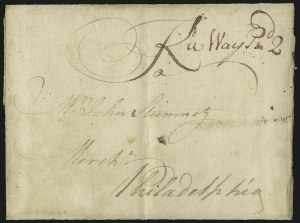 Way Pd 2
Mr John Steinmetz
Merch.t
Philadelphia